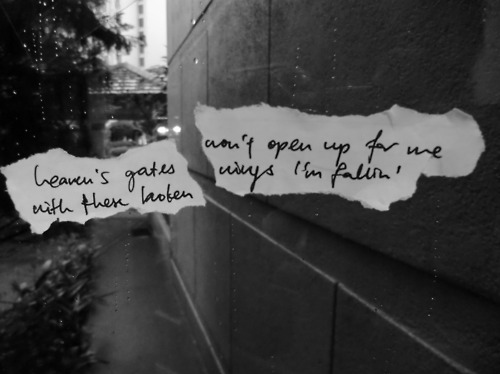 heaven's gates
won't open up for me
with these broken
wings i'm fallin'